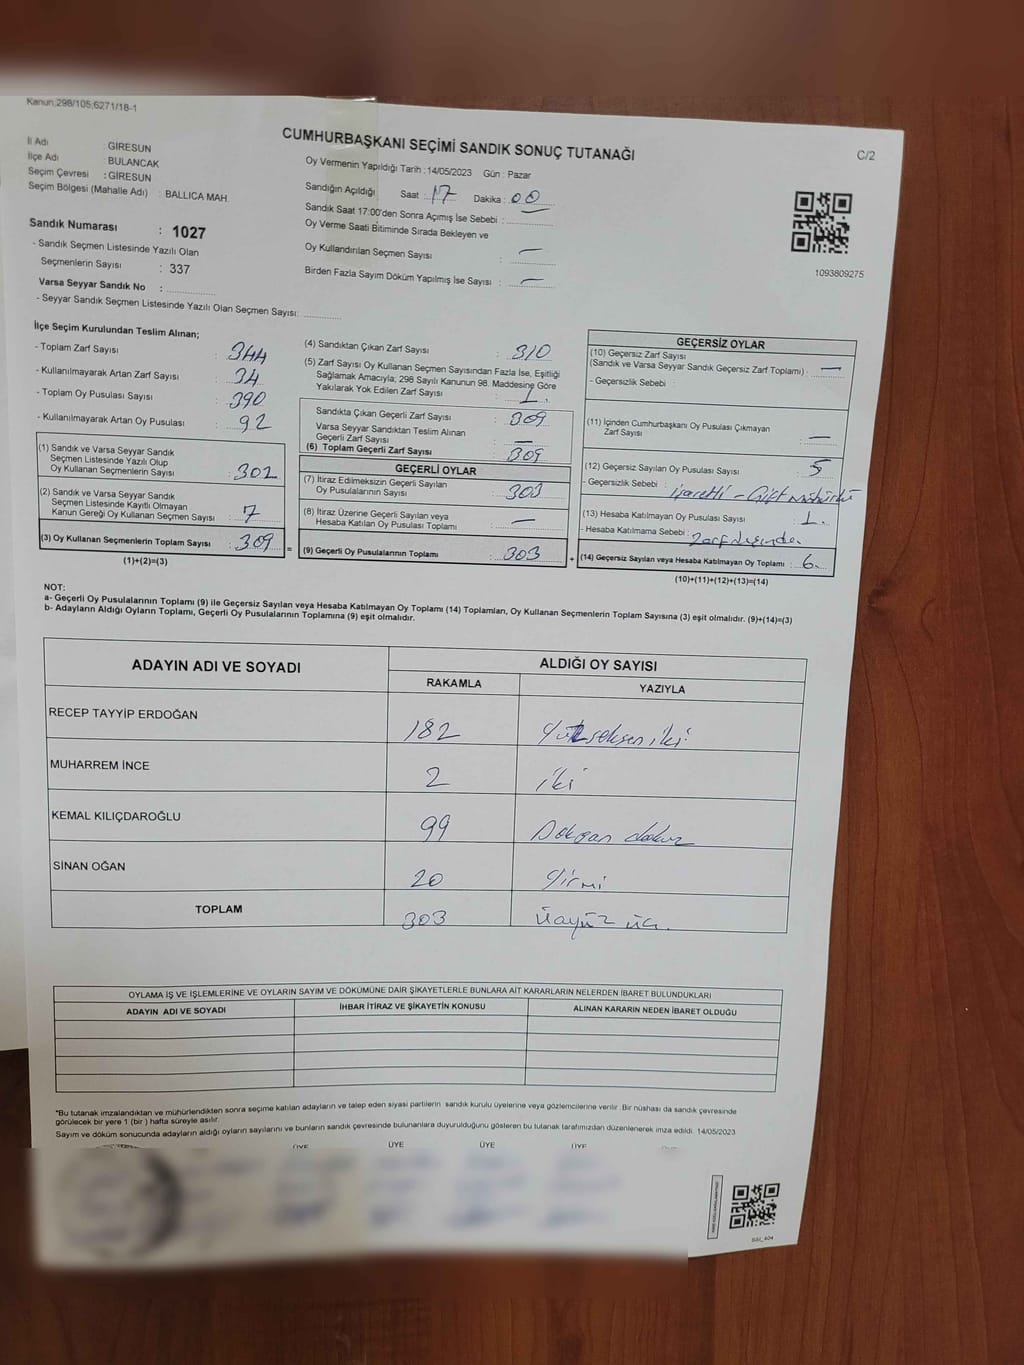 Kanun;298/105;6271/18-1
CUMHURBAŞKANI SEÇİMİ SANDIK SONUÇ TUTANAĞI
C/2
İl Adı : GİRESUN
İlçe Adı : BULANCAK
Seçim Çevresi : GİRESUN
Seçim Bölgesi (Mahalle Adı) : BALLICA MAH.
Oy Vermenin Yapıldığı Tarih : 14/05/2023 Gün : Pazar
Sandığın Açıldığı Saat : 17 Dakika : 00
Sandık Saat 17:00'den Sonra Açımış İse Sebebi :
Oy Verme Saati Bitiminde Sırada Bekleyen ve
Oy Kullandırılan Seçmen Sayısı : —
Birden Fazla Sayım Döküm Yapılmış İse Sayısı : —
1093809275
Sandık Numarası : 1027
- Sandık Seçmen Listesinde Yazılı Olan
Seçmenlerin Sayısı : 337
Varsa Seyyar Sandık No :
- Seyyar Sandık Seçmen Listesinde Yazılı Olan Seçmen Sayısı:
İlçe Seçim Kurulundan Teslim Alınan;
- Toplam Zarf Sayısı : 344
- Kullanılmayarak Artan Zarf Sayısı : 34
- Toplam Oy Pusulası Sayısı : 390
- Kullanılmayarak Artan Oy Pusulası : 92
(1) Sandık ve Varsa Seyyar Sandık
Seçmen Listesinde Yazılı Olup
Oy Kullanan Seçmenlerin Sayısı : 302
(2) Sandık ve Varsa Seyyar Sandık
Seçmen Listesinde Kayıtlı Olmayan
Kanun Gereği Oy Kullanan Seçmen Sayısı : 7
(3) Oy Kullanan Seçmenlerin Toplam Sayısı : 309
(1)+(2)=(3)
(4) Sandıktan Çıkan Zarf Sayısı : 310
(5) Zarf Sayısı Oy Kullanan Seçmen Sayısından Fazla İse, Eşitliği
Sağlamak Amacıyla; 298 Sayılı Kanunun 98. Maddesine Göre
Yakılarak Yok Edilen Zarf Sayısı : 1.
Sandıkta Çıkan Geçerli Zarf Sayısı : 309
Varsa Seyyar Sandıktan Teslim Alınan
Geçerli Zarf Sayısı : —
(6) Toplam Geçerli Zarf Sayısı : 309
GEÇERLİ OYLAR
(7) İtiraz Edilmeksizin Geçerli Sayılan
Oy Pusulalarının Sayısı : 303
(8) İtiraz Üzerine Geçerli Sayılan veya
Hesaba Katılan Oy Pusulası Toplamı : —
= (9) Geçerli Oy Pusulalarının Toplamı : 303 +
GEÇERSİZ OYLAR
(10) Geçersiz Zarf Sayısı
(Sandık ve Varsa Seyyar Sandık Geçersiz Zarf Toplamı) : —
- Geçersizlik Sebebi :
(11) İçinden Cumhurbaşkanı Oy Pusulası Çıkmayan
Zarf Sayısı : —
(12) Geçersiz Sayılan Oy Pusulası Sayısı : 5
- Geçersizlik Sebebi : işaretli - Çift mühürlü
(13) Hesaba Katılmayan Oy Pusulası Sayısı : 1.
- Hesaba Katılmama Sebebi : Zarf dışında
(14) Geçersiz Sayılan veya Hesaba Katılmayan Oy Toplamı : 6.
(10)+(11)+(12)+(13)=(14)
NOT:
a- Geçerli Oy Pusulalarının Toplamı (9) ile Geçersiz Sayılan veya Hesaba Katılmayan Oy Toplamı (14) Toplamları, Oy Kullanan Seçmenlerin Toplam Sayısına (3) eşit olmalıdır. (9)+(14)=(3)
b- Adayların Aldığı Oyların Toplamı, Geçerli Oy Pusulalarının Toplamına (9) eşit olmalıdır.
ADAYIN ADI VE SOYADI ALDIĞI OY SAYISI
RAKAMLA YAZIYLA
RECEP TAYYİP ERDOĞAN 182 Yüzseksen iki
MUHARREM İNCE 2 iki
KEMAL KILIÇDAROĞLU 99 Doksan dokuz
SİNAN OĞAN 20 Yirmi
TOPLAM 303 Üçyüz üç.
OYLAMA İŞ VE İŞLEMLERİNE VE OYLARIN SAYIM VE DÖKÜMÜNE DAİR ŞİKAYETLERLE BUNLARA AİT KARARLARIN NELERDEN İBARET BULUNDUKLARI
ADAYIN ADI VE SOYADI İHBAR İTİRAZ VE ŞİKAYETİN KONUSU ALINAN KARARIN NEDEN İBARET OLDUĞU
*Bu tutanak imzalandıktan ve mühürlendikten sonra seçime katılan adayların ve talep eden siyasi partilerin sandık kurulu üyelerine veya gözlemcilerine verilir. Bir nüshası da sandık çevresinde
görülecek bir yere 1 (bir) hafta süreyle asılır.
Sayım ve döküm sonucunda adayların aldığı oyların sayılarını ve bunların sandık çevresinde bulunanlara duyurulduğunu gösteren bu tutanak tarafımızdan düzenlenerek imza edildi. 14/05/2023
ÜYE ÜYE ÜYE ÜYE